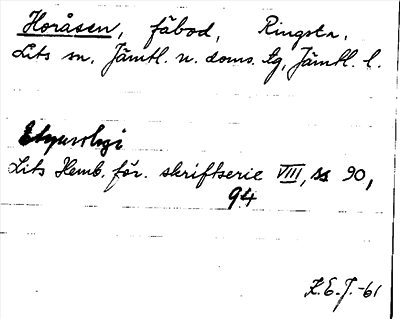 Horåsen, fäbod, Ringsta,
Lits sn, Jämtl. n. doms. tg, Jämtl. l.
Etymologi
Lits Hemb. för. skriftserie VIII, ss 90,
94
K.E.J.-61